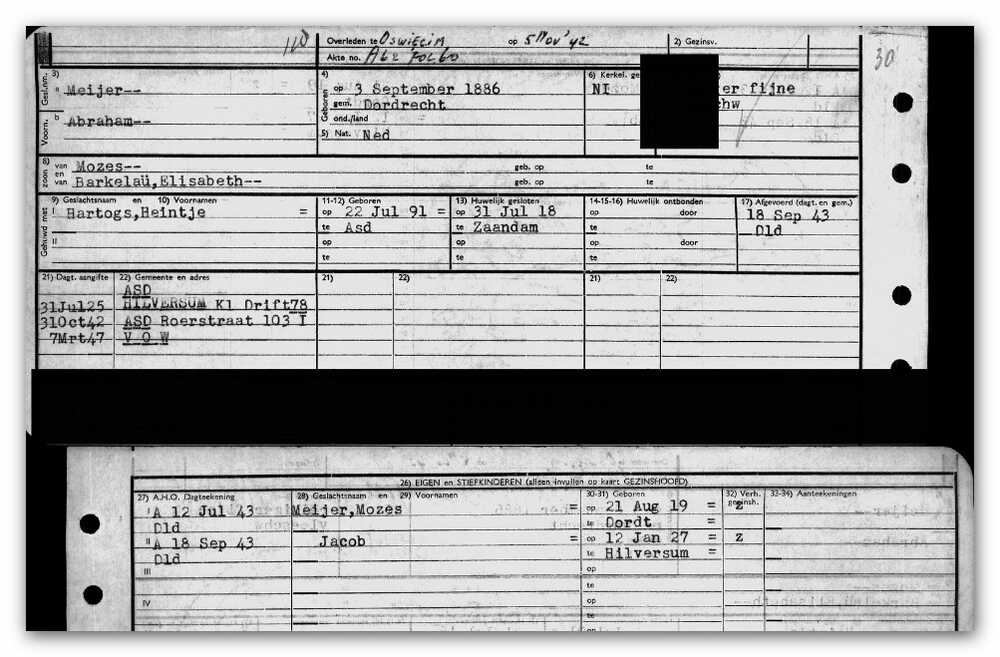 110
Overleden te Oswiecim op 5 Nov '42
2) Gezinsv.
Akte no. A62 fol 60
30
Gesl.nm. 3) a Meijer--
Voorn. b Abraham--
4) Geboren op 3 September 1886
gem. Dordrecht
ond./land
5) Nat. Ned
6) Kerkel. ge
NI
er fijne
chw
8) zoon van Mozes-- geb. op te
en van Barkelaü,Elisabeth-- geb. op te
Gehuwd met
9) Geslachtsnaam en 10) Voornamen
11-12) Geboren
13) Huwelijk gesloten
14-15-16) Huwelijk ontbonden
17) Afgevoerd (dagt. en gem.)
I Hartogs,Heintje = op 22 Jul 91 = op 31 Jul 18 op door 18 Sep 43
te Asd te Zaandam te Dld
II op op op door
te te te
21) Dagt. aangifte 22) Gemeente en adres 21) 22) 21) 22)
ASD
31Jul25 HILVERSUM Kl Drift78
31Oct42 ASD Roerstraat 103 I
7Mrt47 V O W
26) EIGEN en STIEFKINDEREN (alleen invullen op kaart GEZINSHOOFD)
27) A.H.O. Dagteekening 28) Geslachtsnaam en 29) Voornamen 30-31) Geboren 32) Verh. gezinsh. 33-34) Aanteekeningen
I A 12 Jul 43 Meijer,Mozes = op 21 Aug 19 = z
Dld te Dordt =
II A 18 Sep 43 Jacob = op 12 Jan 27 = z
Dld te Hilversum =
III op
te
IV op
te
op